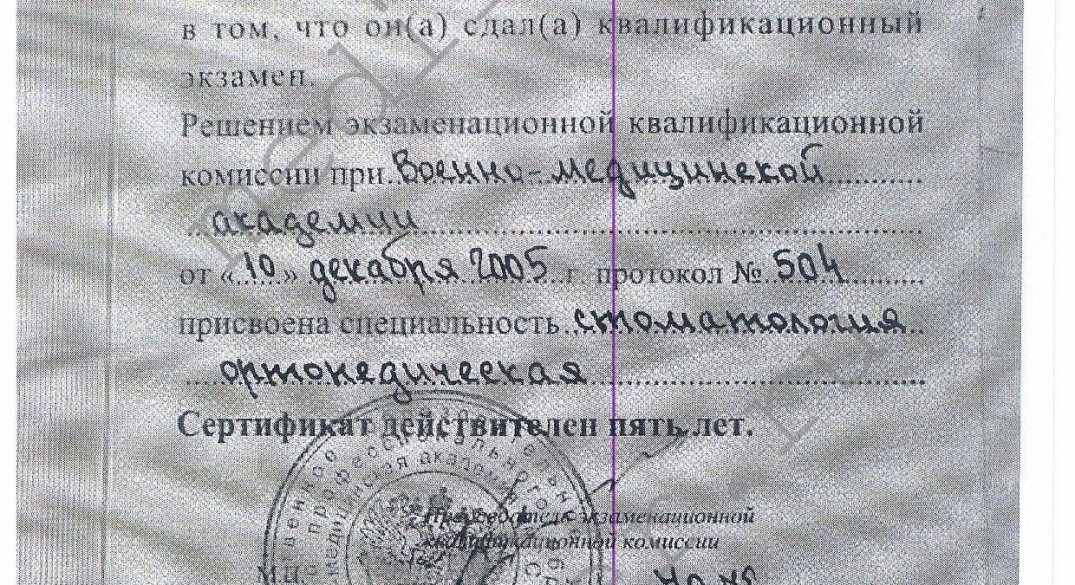 в том, что он(а) сдал(а) квалификационный
экзамен.
Решением экзаменационной квалификационной
комиссии при Военно-медицинской
академии
от «10» декабря 2005 г. протокол № 504
присвоена специальность стоматология
ортопедическая
Сертификат действителен пять лет.
медицинская академия
Председатель экзаменационной
квалификационной комиссии
М.П.